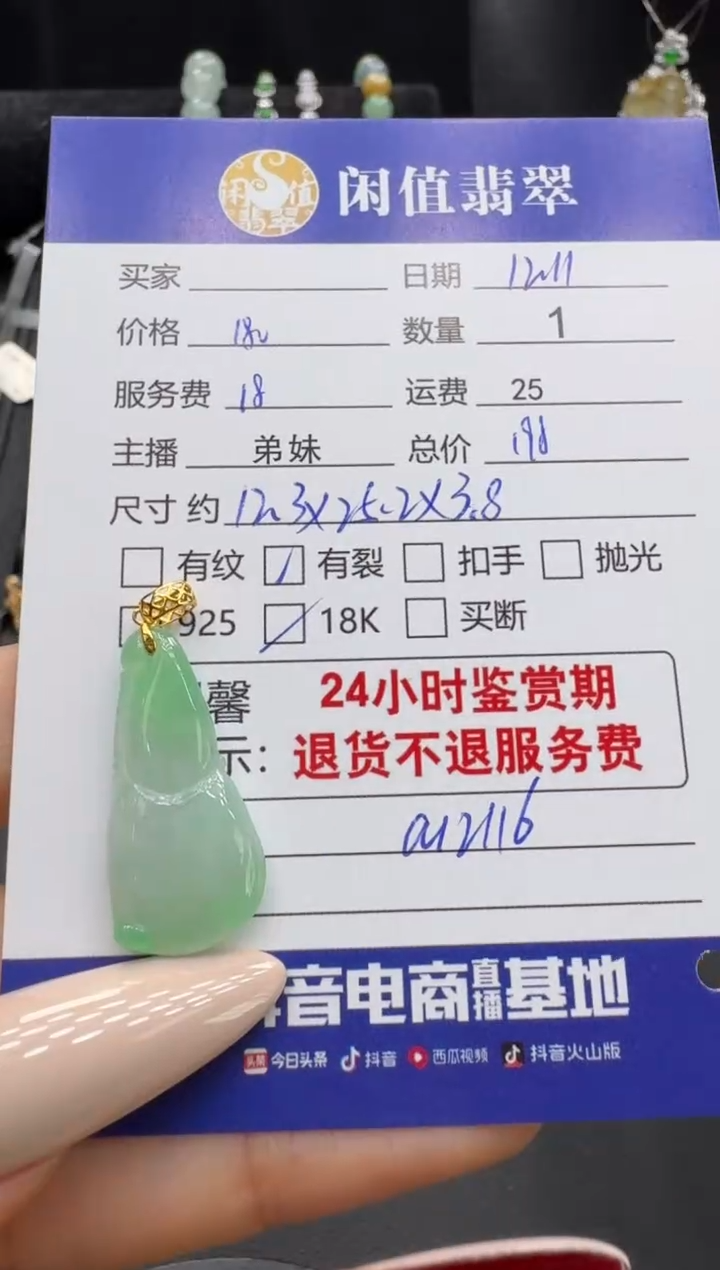 闲值翡翠 闲值翡翠
买家 日期 12.11
价格 180 数量 1
服务费 18 运费 25
主播 弟妹 总价 198
尺寸 约 12.3X25.2X3.8
有纹 有裂 扣手 抛光
925 18K 买断
馨 24小时鉴赏期
示: 退货不退服务费
a12116
音电商直播基地
头条 今日头条 抖音 西瓜视频 抖音火山版